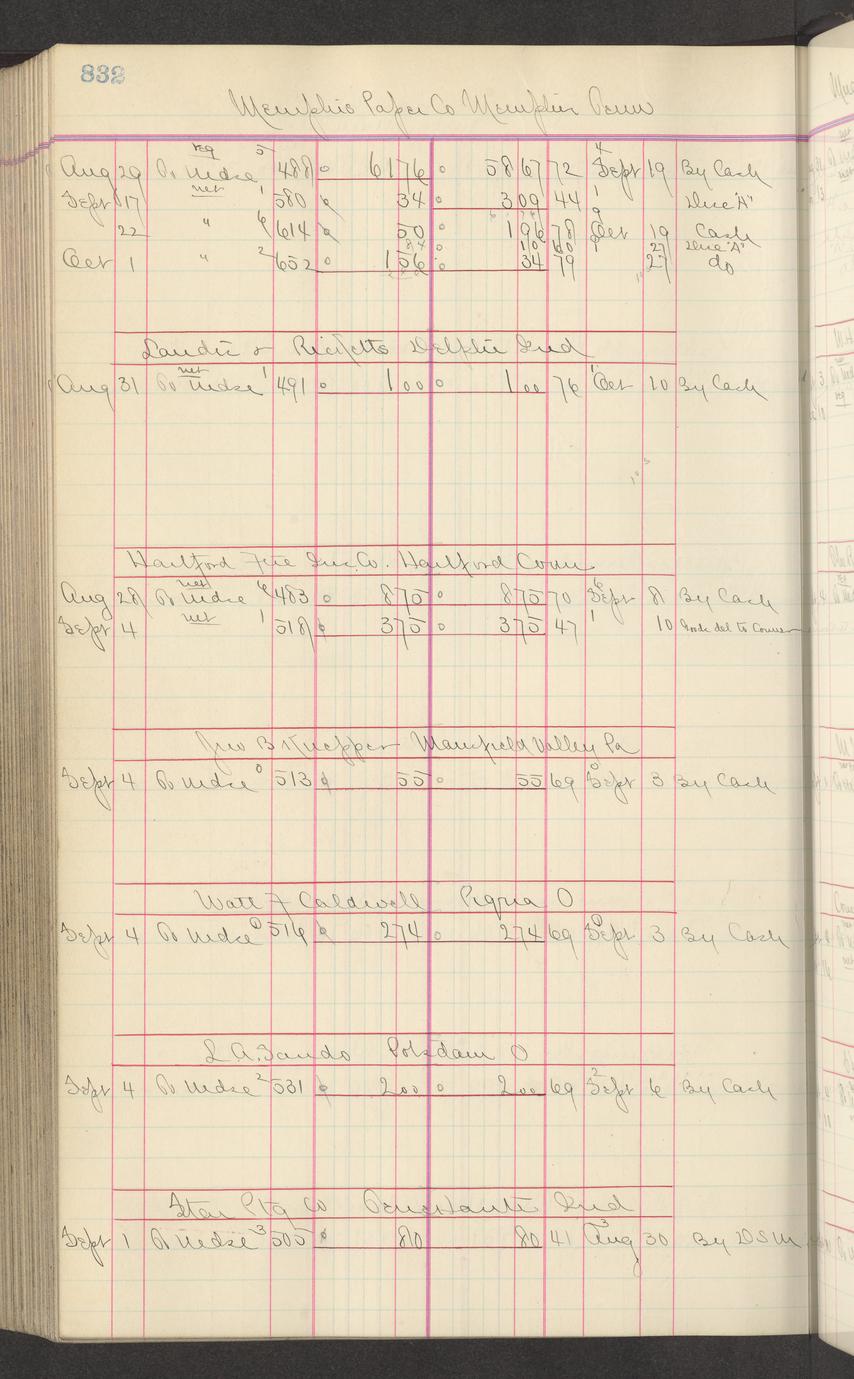 832
Memphis Paper Co Memphis Tenn
Aug 29 To Mdse reg 5 488 6176 5867 72 4 Sept 19 By Cash
Sept 17 net 1 580 34 309 44 1 Disc "A"
22 " 6 614 50 196 78 9 Oct 19 Cash
27 Disc "A"
Oct 1 " 2 652 156 34 79 27 do
& Ricketts Delphi Ind
Aug 31 To Mdse net 1 491 100 100 76 1 Oct 10 By Cash
Hartford Fire Ins. Co. Hartford Conn
Aug 28 To Mdse net 6 483 875 875 70 6 Sept 8 By Cash
Sept 4 net 1 518 375 375 47 1 10 del to
Jno B Knepper Mansfield Valley Pa
Sept 4 To Mdse 0 513 55 55 69 0 Sept 3 By Cash
Watt F Caldwell Piqua O
Sept 4 To Mdse 0 516 274 274 69 0 Sept 3 By Cash
L. A. Sando Potsdam O
Sept 4 To Mdse 2 531 200 200 69 2 Sept 6 By Cash
Star Ptg Co Ind
Sept 1 To Mdse 3 505 80 80 41 3 Aug 30 By D S M